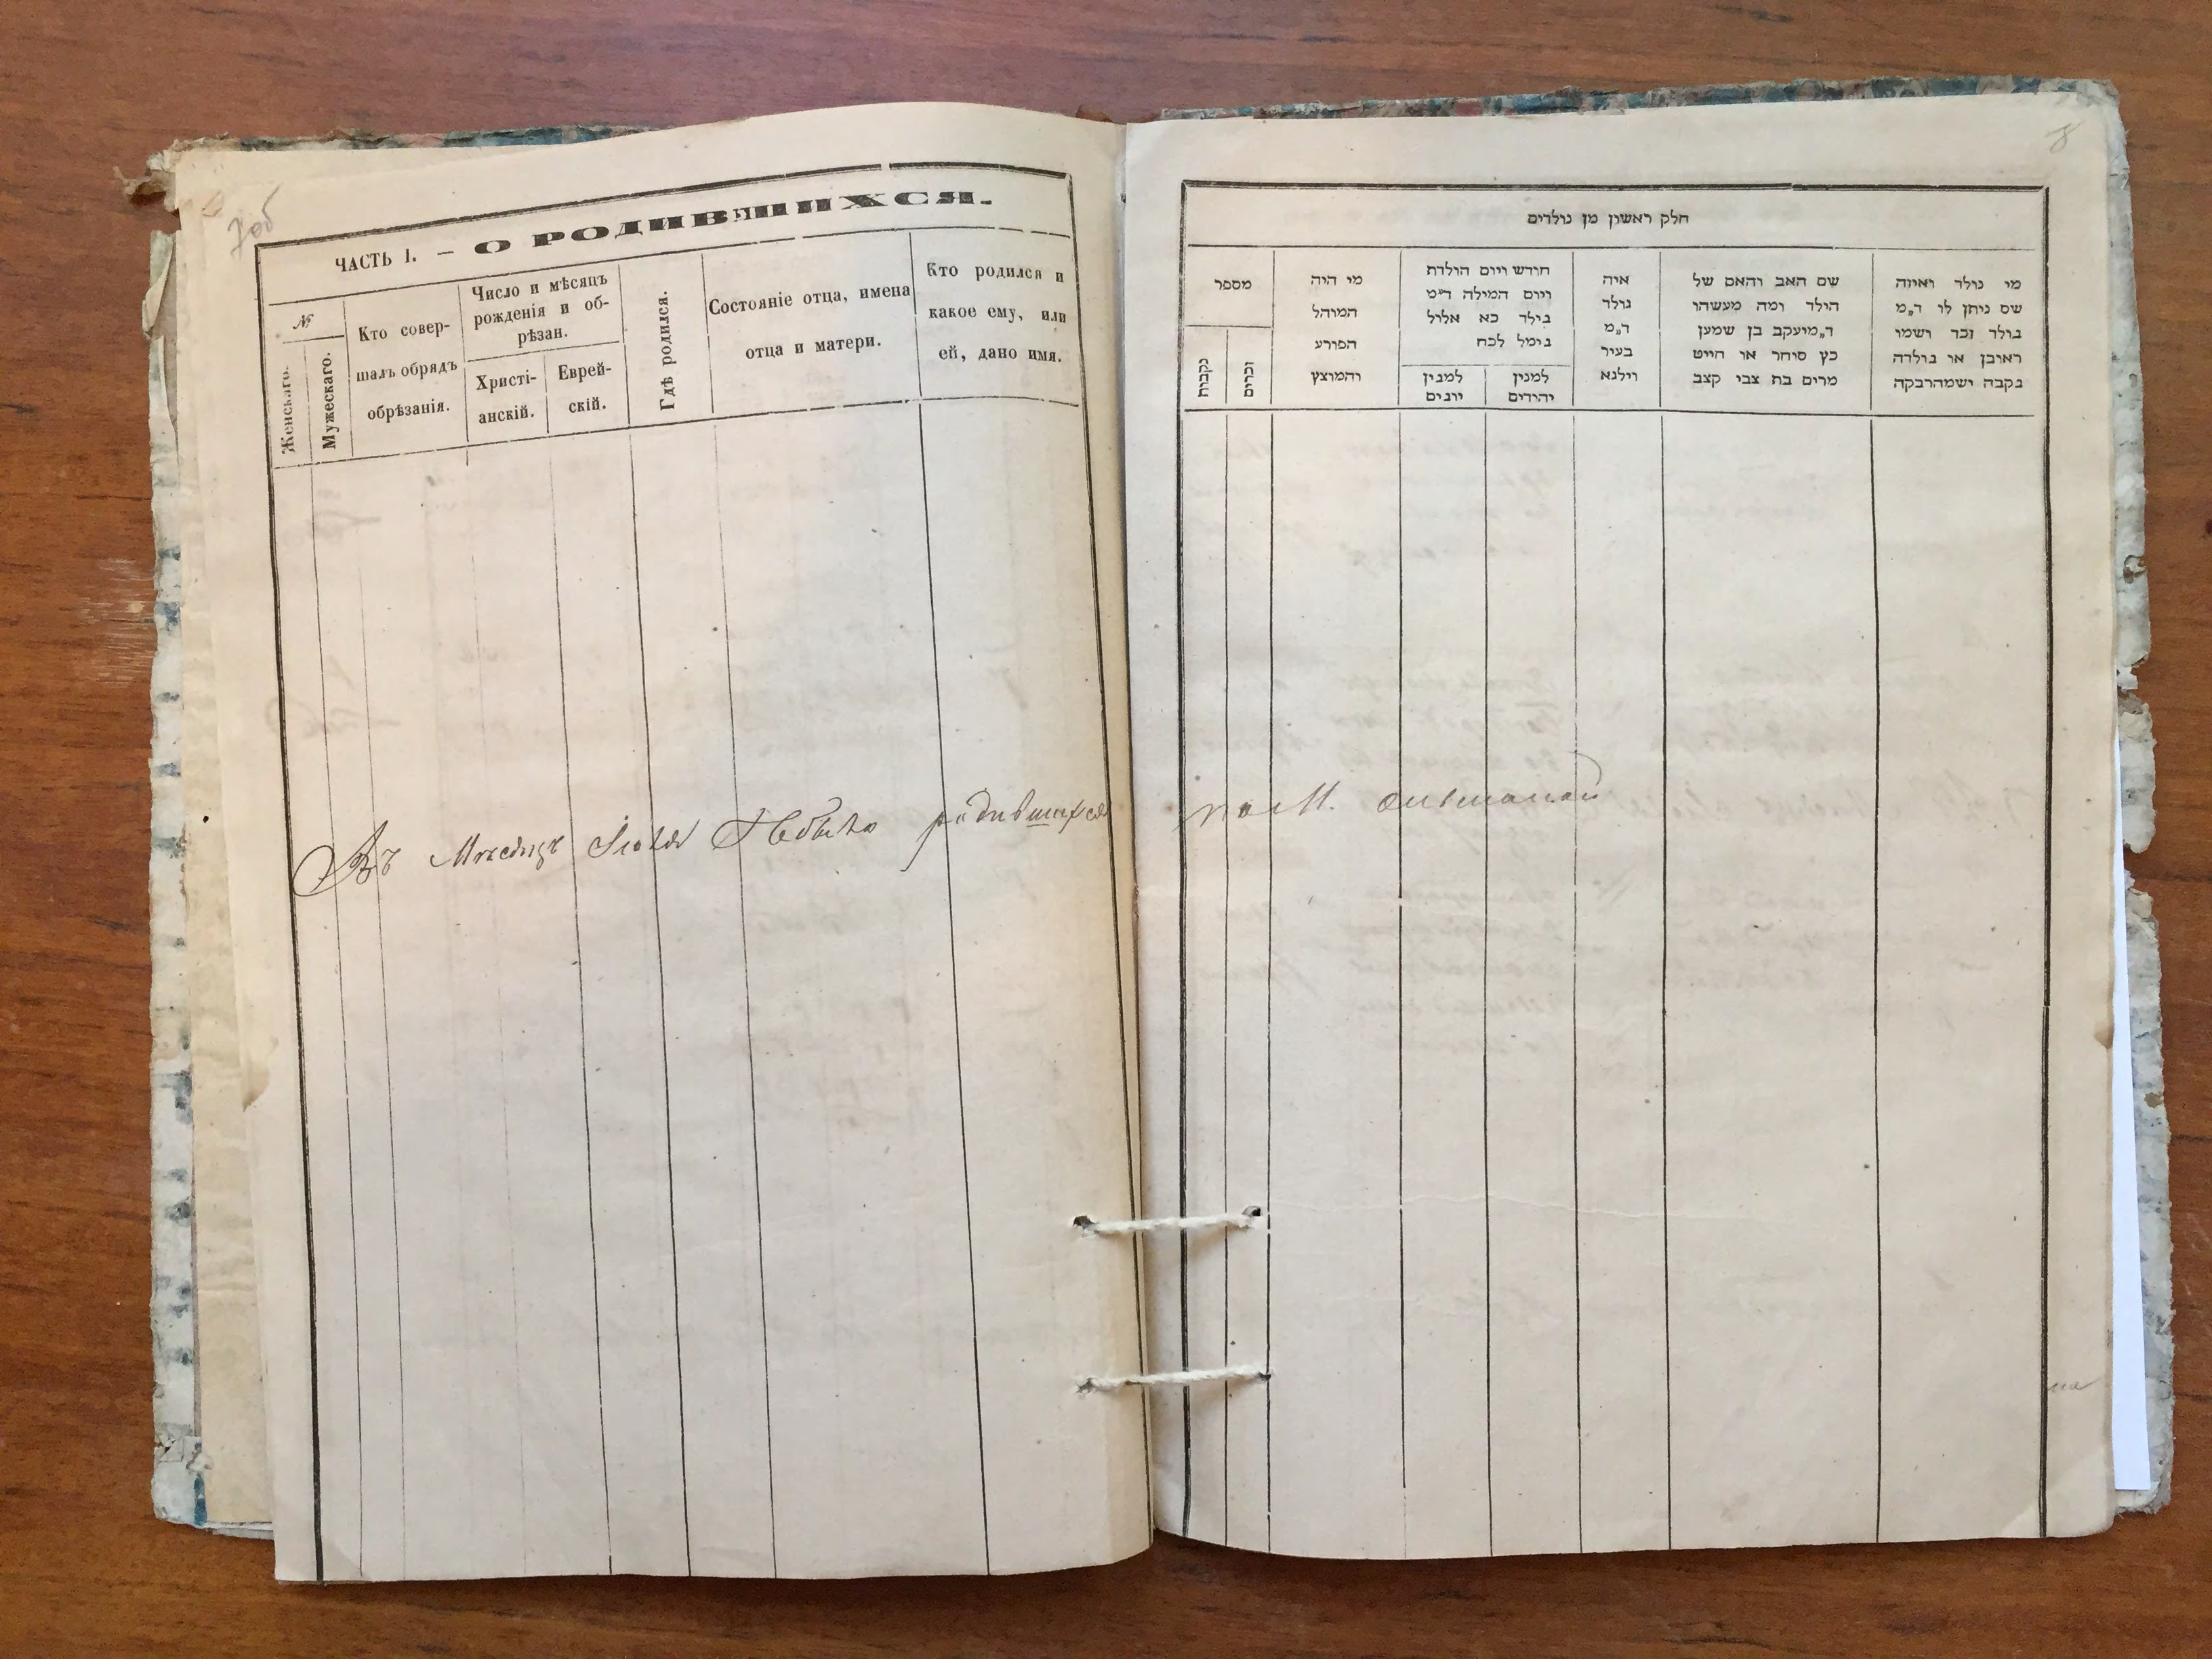 7об
ЧАСТЬ I. — О РОДИВШИХСЯ.
№
Женскаго.
Мужескаго.
Кто совер-
шалъ обрядъ
обрѣзанія.
Число и мѣсяцъ
рожденія и об-
рѣзан.
Христі-
анскій.
Еврей-
скій.
Гдѣ родился.
Состояніе отца, имена
отца и матери.
Кто родился и
какое ему, или
ей, дано имя.
Въ Месяцѣ Небыло родившихся
8
חלק ראשון מן נולדים
מי נולד ואיזה
שם ניתן לו ד״מ
נולד זכר ושמו
ראובן או נולדה
נקבה ישמהרבקה
שם האב והאם של
הילד ומה מעשהו
ד״מיעקב בן שמען
כץ סוחר או חייט
מרים בת צבי קצב
איה
נולד
ד״מ
בעיר
וילנא
חודש ויום הולדת
ויום המילה ד״מ
נולד כא אלול
נימל לכח
למנין
יהודים
למנין
יונים
מי היה
המוהל
הפורע
והמוצץ
מספר
זכרים
נקבות